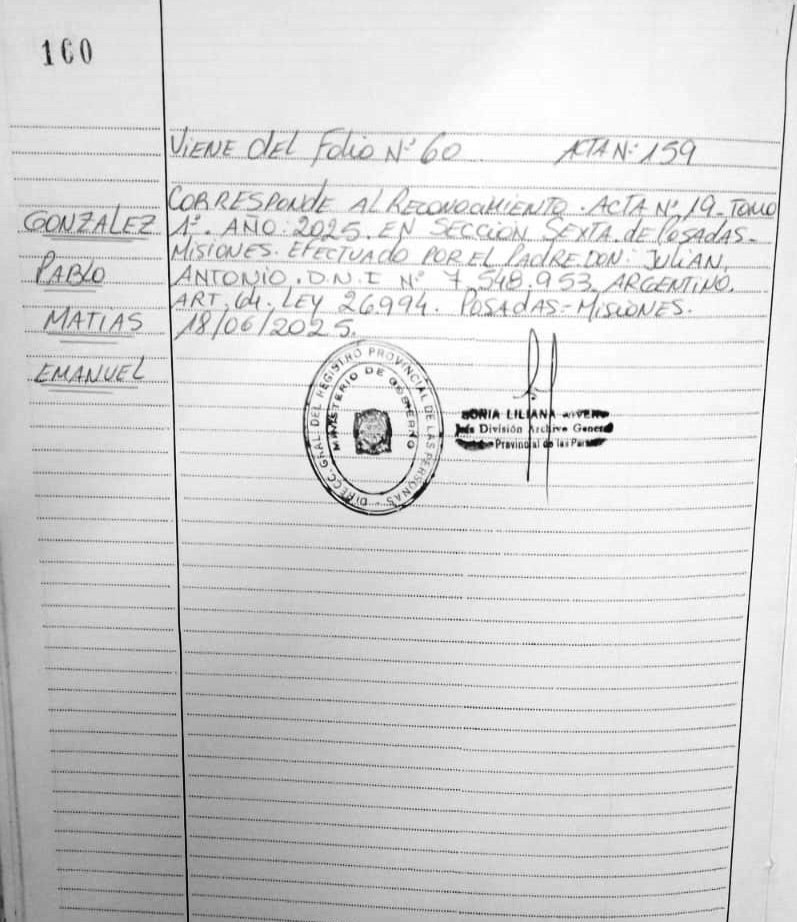 160
VIENE DEL Folio Nº 60 ACTA Nº 159
CORRESPONDE AL RECONOCIMIENTO. ACTA Nº 19. TOMO
GONZALEZ
1º. AÑO: 2025. EN SECCION SEXTA. de POSADAS-
MISIONES. EFECTUADO POR EL PADRE DON: JULIAN,
PABLO
ANTONIO. D.N.I Nº 7.548.953. ARGENTINO.
ART. 64. LEY 26994. POSADAS-MISIONES.
MATIAS
18/06/2025.
EMANUEL
DIRECC. GRAL. DEL REGISTRO PROVINCIAL DE LAS PERSONAS
MINISTERIO DE GOBIERNO
SONIA LILIANA
División Archivo General
Provincial de las